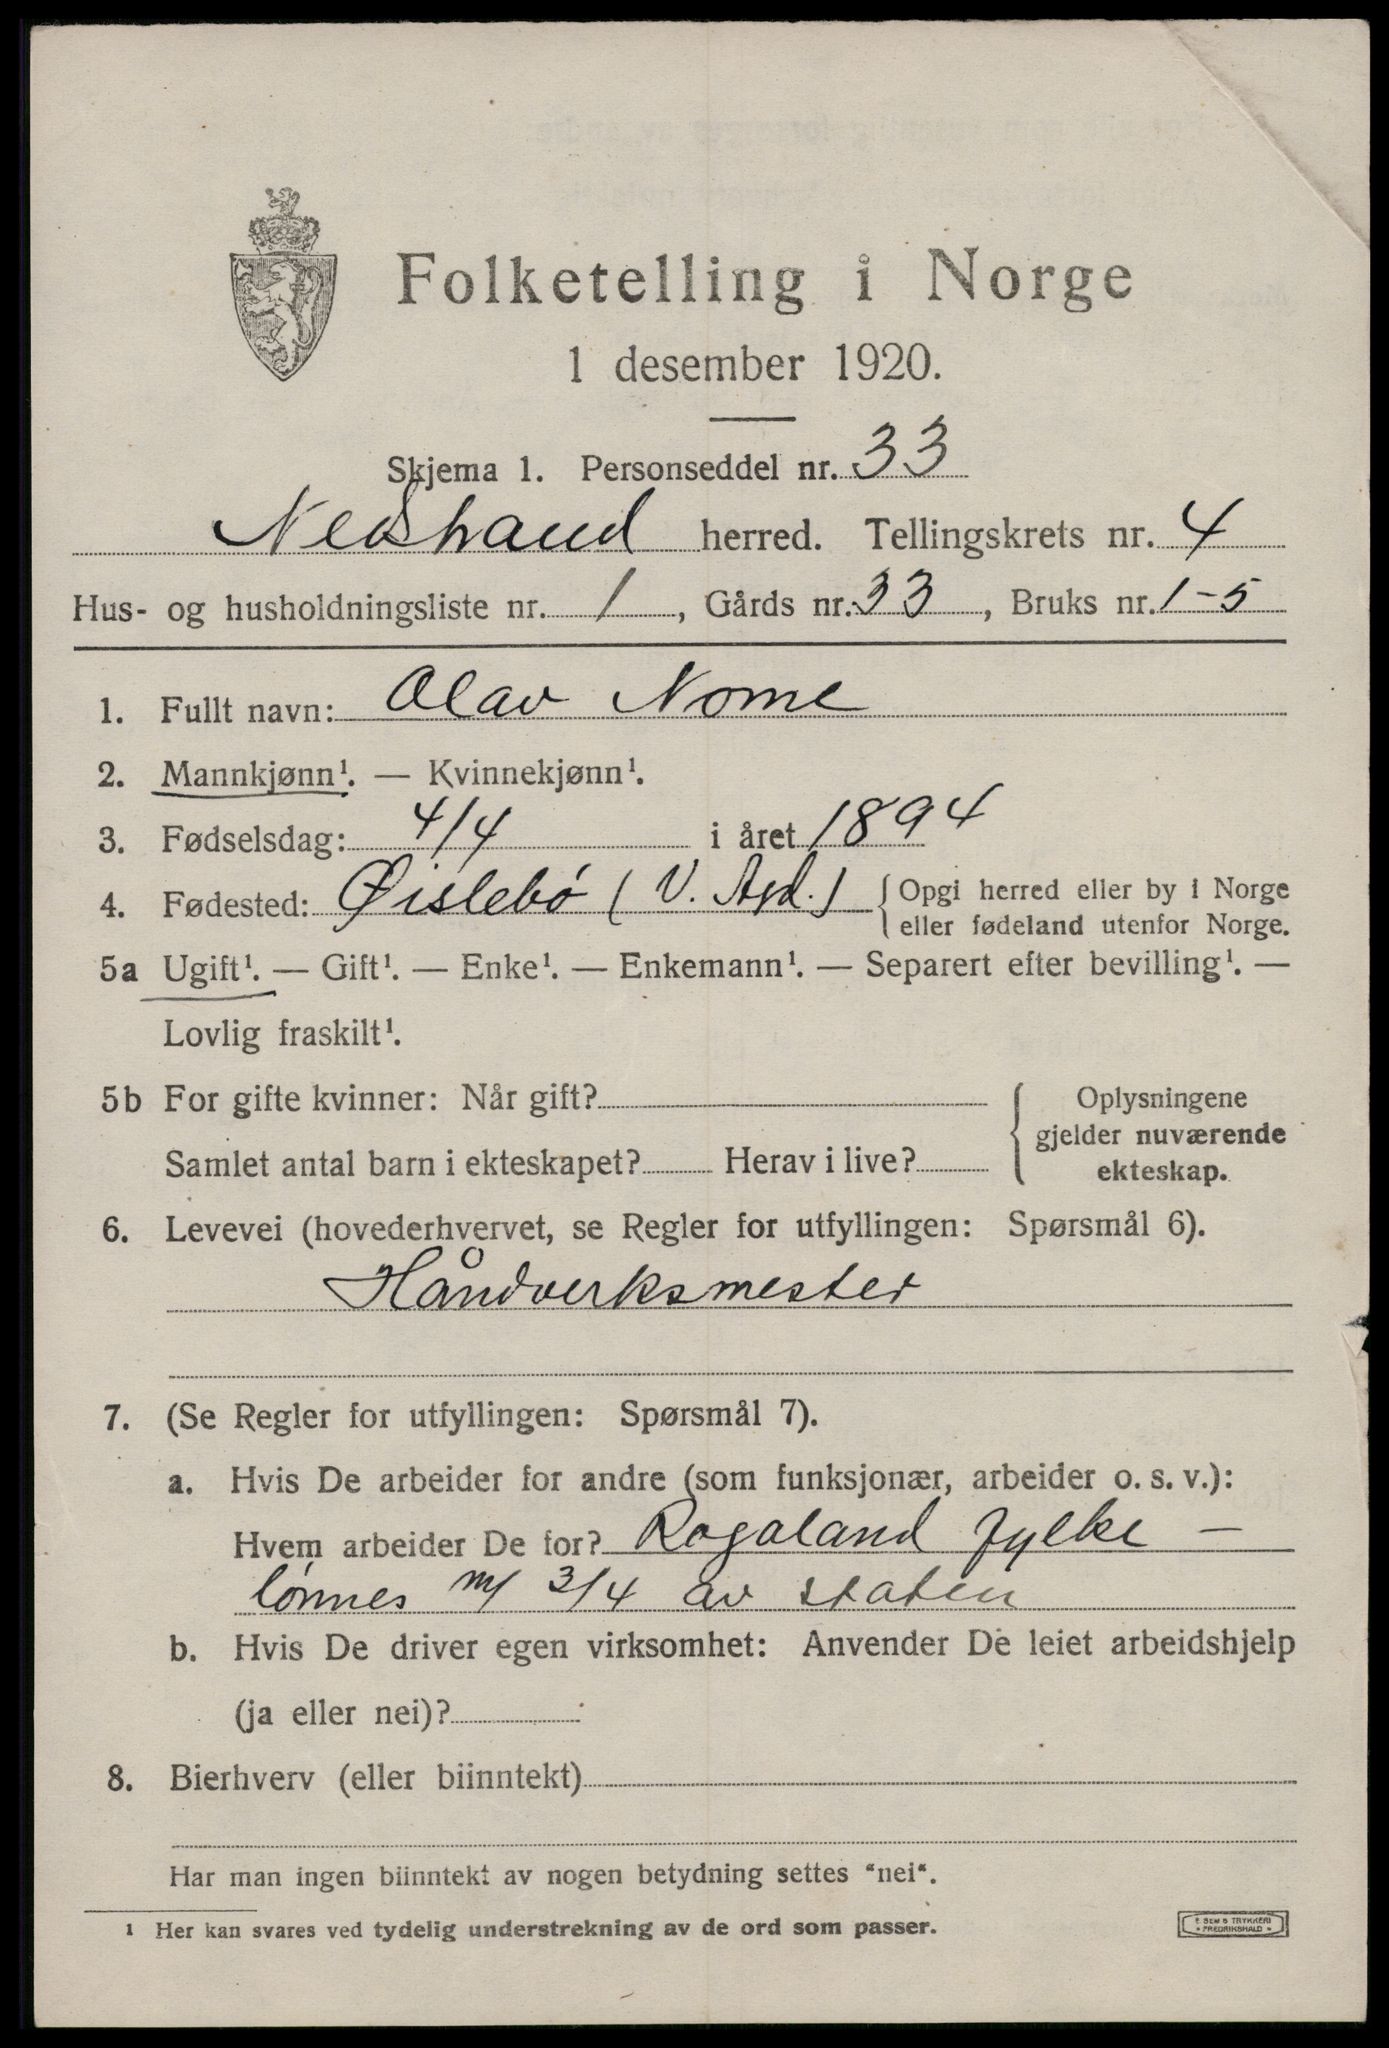 Folketelling i Norge
1 desember 1920.
Skjema 1. Personseddel nr. 33
Nedstrand herred. Tellingskrets nr. 4
Hus- og husholdningsliste nr. 1, Gårds nr. 33, Bruks nr. 1-5
1. Fullt navn: Olav Nome
2. Mannkjønn¹. — Kvinnekjønn¹.
3. Fødselsdag: 4/4 i året 1894
4. Fødested: Øislebø (V. Agd.) { Opgi herred eller by i Norge
eller fødeland utenfor Norge.
5a Ugift¹. — Gift¹. — Enke¹. — Enkemann¹. — Separert efter bevilling¹. —
Lovlig fraskilt¹.
5b For gifte kvinner: Når gift?
Samlet antal barn i ekteskapet? Herav i live?
Oplysningene
gjelder nuværende
ekteskap.
6. Levevei (hovederhvervet, se Regler for utfyllingen: Spørsmål 6).
Håndverksmester
7. (Se Regler for utfyllingen: Spørsmål 7).
a. Hvis De arbeider for andre (som funksjonær, arbeider o. s. v.):
Hvem arbeider De for? Rogaland fylke —
lønnes m/ 3/4 av staten
b. Hvis De driver egen virksomhet: Anvender De leiet arbeidshjelp
(ja eller nei)?
8. Bierhverv (eller biinntekt)
Har man ingen biinntekt av nogen betydning settes "nei".
¹ Her kan svares ved tydelig understrekning av de ord som passer.
E. SEM'S TRYKKERI
* FREDRIKSHALD *